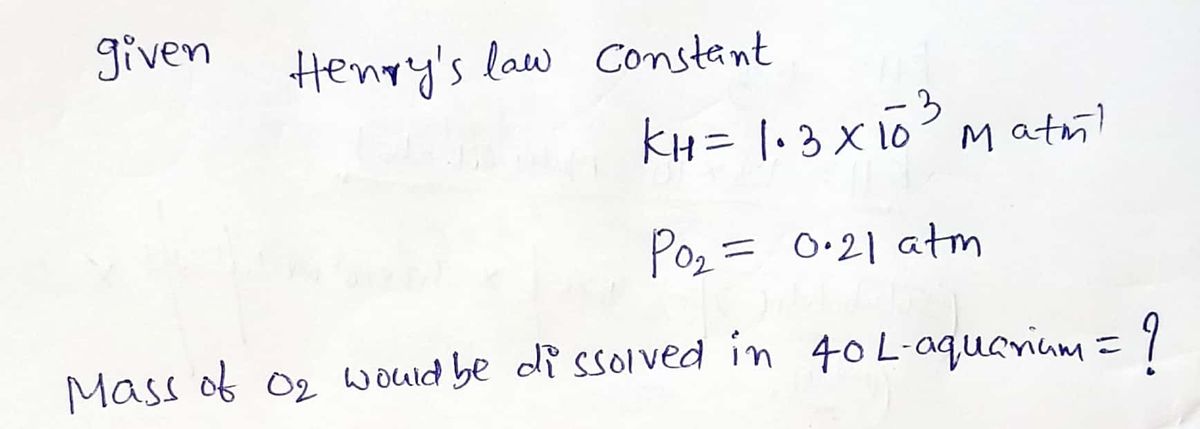 given Henry's law constant
KH = 1.3 × 10⁻³ M atm⁻¹
PO₂ = 0.21 atm
Mass of O₂ would be dissolved in 40 L-aquarium = ?